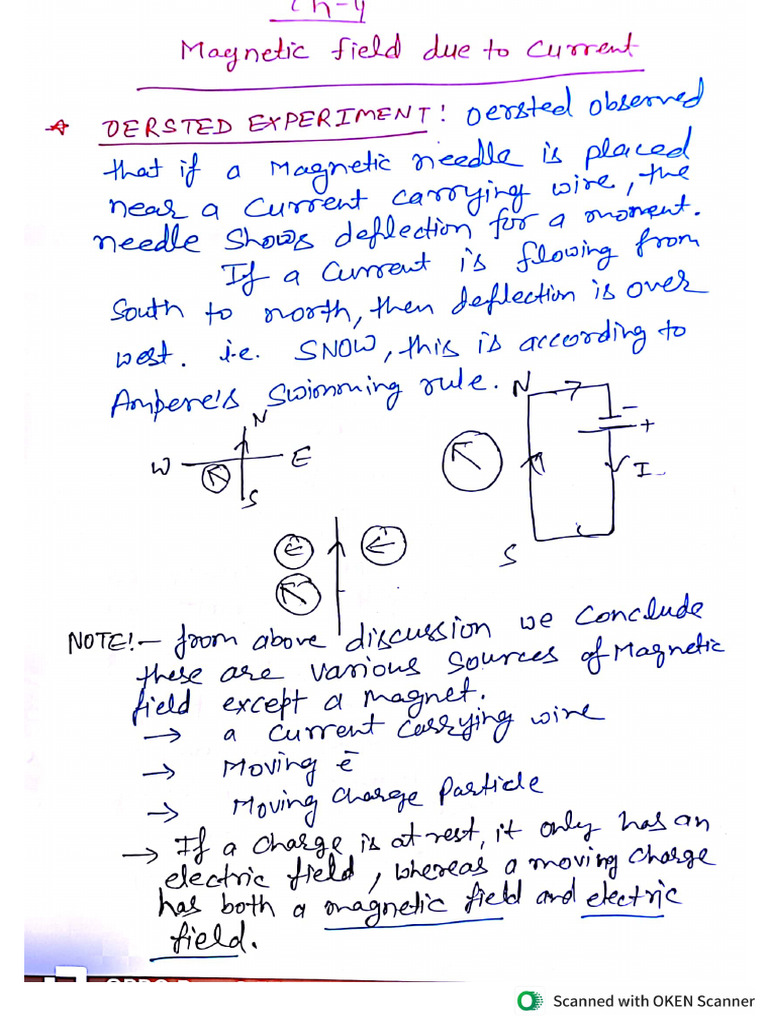 Ch-4
Magnetic field due to Current
OERSTED EXPERIMENT! Oersted observed
that if a Magnetic needle is placed
near a current carrying wire, the
needle shows deflection for a moment.
If a current is flowing from
South to north, then deflection is over
west. i.e. SNOW, this is according to
Ampere's Swimming rule.
N
N
W
E
S
- +
I
S
NOTE!- from above discussion we conclude
these are various sources of Magnetic
field except a magnet.
→ a current carrying wire
→ Moving ē
→ Moving charge Particle
→ If a charge is at rest, it only has an
electric field, whereas a moving charge
has both a magnetic field and electric
field.
Scanned with OKEN Scanner